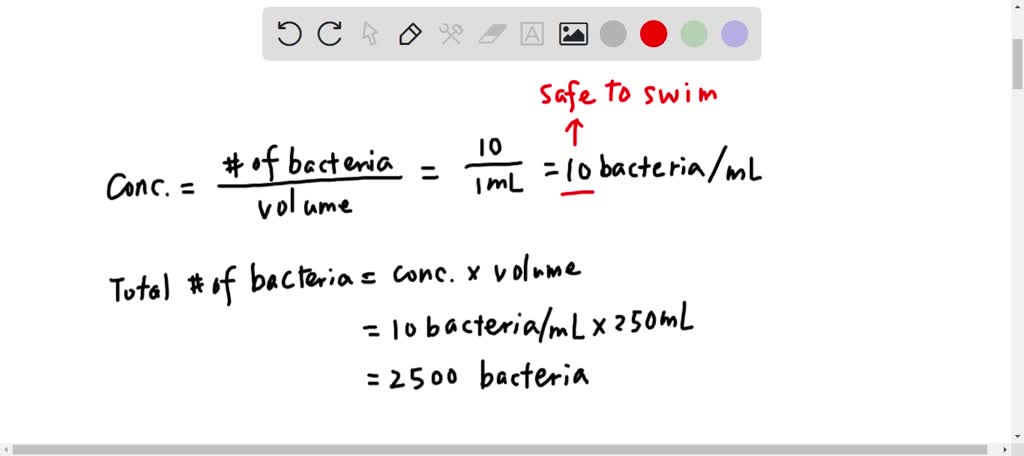 Safe to swim
↑
Conc. = # of bacteria / volume = 10 / 1mL = 10 bacteria/mL
Total # of bacteria = conc. x volume
= 10 bacteria/mL x 250mL
= 2500 bacteria